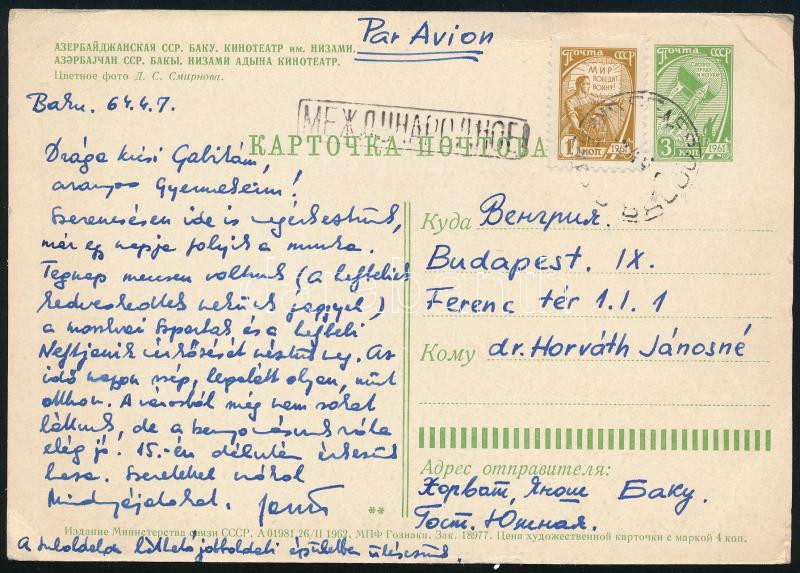 Par Avion
АЗЕРБАЙДЖАНСКАЯ ССР. БАКУ. КИНОТЕАТР им. НИЗАМИ.
АЗӘРБАЈҸАН ССР. БАКЫ. НИЗАМИ АДЫНА КИНОТЕАТР.
Цветное фото Д. С. Смирнова.
ПОЧТА СССР
МИР ПОБЕДИТ ВОЙНУ!
1 КОП 1961
ПОЧТА СССР
3 КОП 1961
Baku. 64.4.7.
МЕЖДУНАРОДНОЕ
КАРТОЧКА ПОЧТОВАЯ
Drága kisi Gabikám,
aranyos Gyermekeim!
Szerencsésen ide is megérkeztünk,
már egy napja folyik a munka.
Tegnap meccsen voltunk (a helybeliek
kedveskedtek nekünk jeggyel)
a moszkvai Szpartak és a helybeli
Neftjanik mérkőzését néztük meg. Az
idő nappn szép, legalább olyan, mint
otthon. A városból még nem sokat
láttunk, de a benyomásunk róla
elég jó. 15.-én délután érkezünk
haza. Szeretettel csókol
Mindnyájatokat. Jani
Куда Венгрия.
Budapest. IX.
Ferenc tér 1. I. 1
Кому dr. Horváth Jánosné
Адрес отправителя:
Хорват, Янош Баку.
Гост. Южная.
**
Издание Министерства связи СССР. А 01981 26/II 1962. МПФ Гознака. Зак. 18977. Цена художественной карточки с маркой 4 коп.
A túloldalon látható jobboldali épületben ülésezünk.